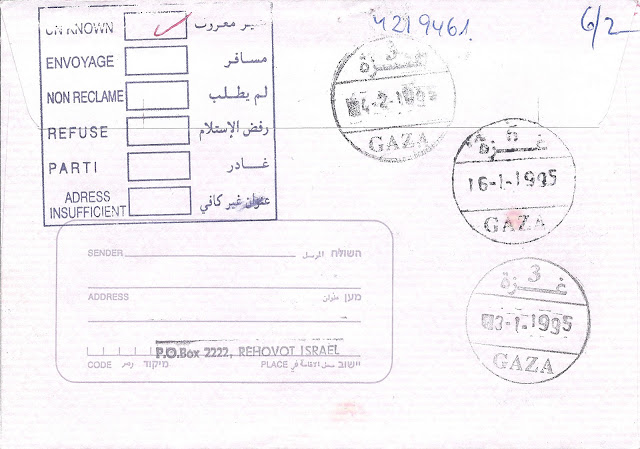 UNKNOWN غير معروف
ENVOYAGE مسافر
NON RECLAME لم يطلب
REFUSE رفض الإستلام
PARTI غادر
ADRESS INSUFFICIENT عنوان غير كافي
4219461
6/2
غزة 3
4-2-1995
GAZA
غزة
16-1-1995
GAZA
غزة 3
3-1-1995
GAZA
SENDER השולח المرسل
ADDRESS מען عنوان
P.O.Box 2222, REHOVOT ISRAEL
CODE מיקוד رمز PLACE יישוב محل الاقامة في